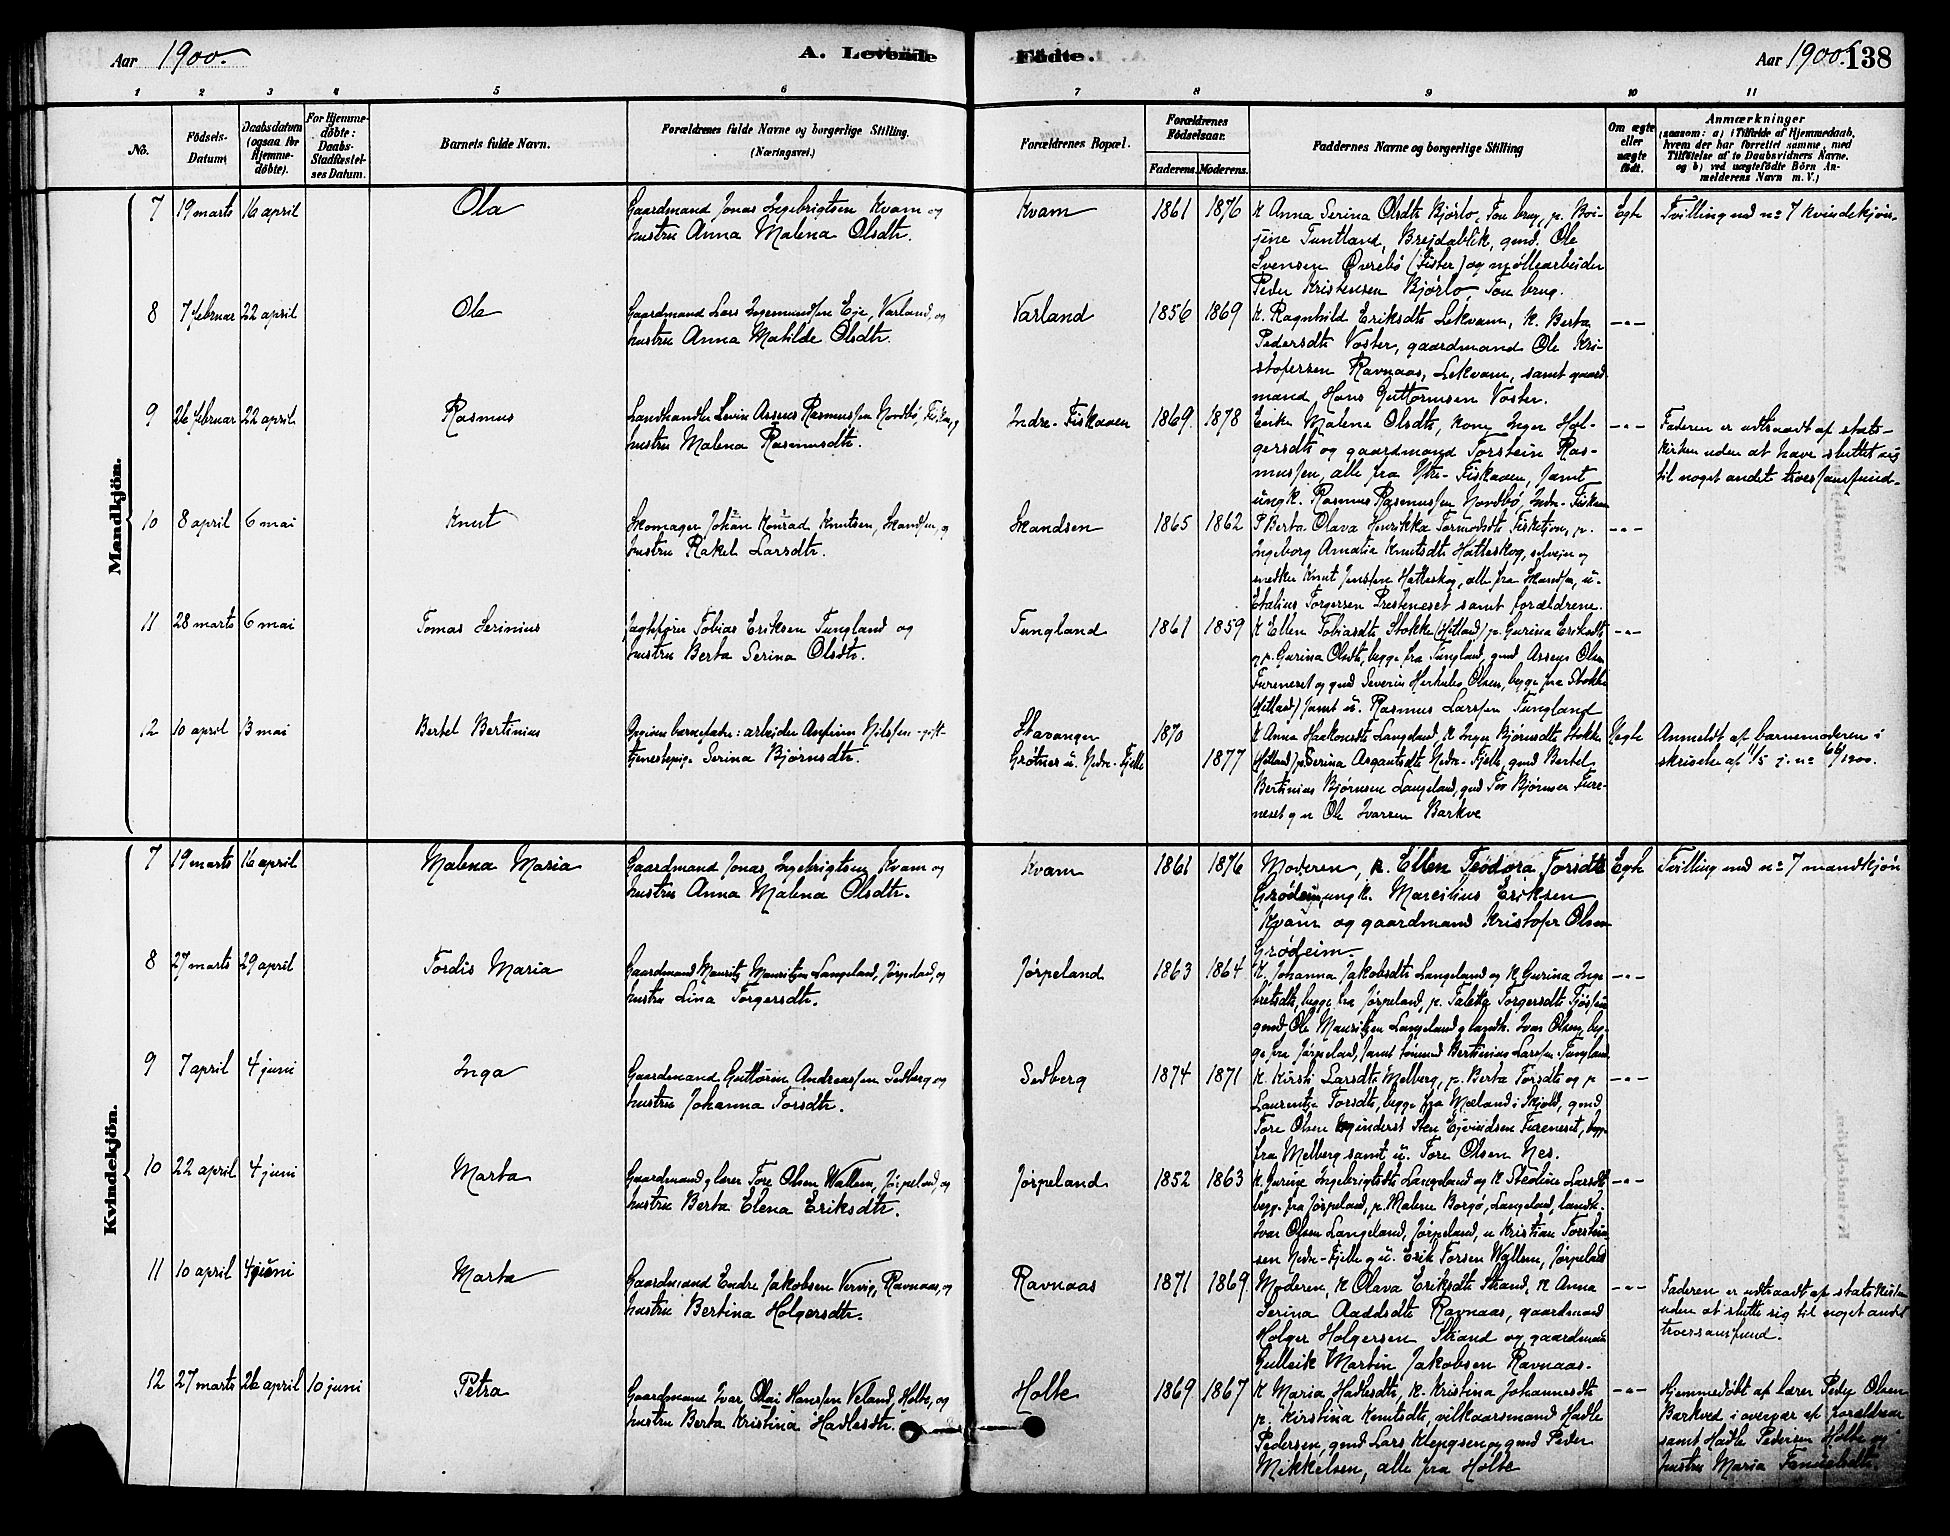 Aar 1900. A. Levende
Födte. Aar 1900. 138
1 2 3 4 5 6 7 8 9 10 11
No.
Födsels-
Datum.
Daabsdatum
(ogsaa for
Hjemme-
döbte).
For Hjemme-
döbte:
Daabs-
Stadfæstel-
ses Datum.
Barnets fulde Navn.
Forældrenes fulde Navne og borgerlige Stilling.
(Næringsvei.)
Forældrenes Bopæl.
Forældrenes
Födselsaar.
Faderens. Moderens.
Faddernes Navne og borgerlige Stilling
Om ægte
eller
uægte
født.
Anmærkninger
(saasom: a) i Tilfælde af Hjemmedaab,
hvem der har forrettet samme, med
Tilföielse af to Daabsvidners Navne.
og b) ved uægtefødte Börn An-
melderens Navn m. V.)
Mandkjön.
7 19 marts 16 april Ola
Gaardmand Jonas Ingebrigtsen Kvam og
hustru Anna Malena Olsdtr.
Kvam 1861 1876
K Anna Serina Olsdtr Bjørlo, Tou brug, p.
Tuntland, Brejdablik, gmd. Ole
Svensen Øvrebö (Fister) og møllearbeider
Peder Kristensen Bjørlo, Tou brug.
Egte Tvilling med no 7 kvindekjön.
8 7 februar 22 april Ole
Gaardmand Lars Ingemundsen Eje, Varland, og
hustru Anna Matilde Olsdtr.
Varland 1856 1869
K. Ragnhild Eriksdtr Lekvam, K. Berta
Pedersdtr Voster, gaardmand Ole Kri-
stofersen Ravnaas, Lekvam, samt gaard-
mand Hans Guttormsen Voster.
-"-
9 26 februar 22 april Rasmus
Landhandler Levin Asseus Rasmussen Nordbö, Fisk., og
hustru Malena Rasmusdtr.
Indre-Fiskaaen 1869 1878
Enke Malene Olsdtr, Kone Inger Hol-
gersdtr og gaardmand Torstein Ras-
mussen, alle fra Ytre-Fiskaaen, samt
ungk. Rasmus Rasmussen Nordbø, Indre-Fiskaaen
-"-
Faderen er udtraadt af stats-
kirken uden at have sluttet sig
til noget andet troessamfund.
10 8 april 6 mai Knut
Skomager Johan Konrad Knutsen, Skandsen, og
hustru Rakel Larsdtr.
Skandsen 1865 1862
P Berta Olava Henrikka Tormodsdtr Fisketjøn, p.
Ingeborg Amalia Knutsdtr Hatteskog, selvejer og
snedker Knut Jensen Hatteskog, alle fra Skandsen, u.
Etalius Torgersen Presteneset samt forældrene.
-"-
11 28 marts 6 mai Tomas Serinius
Jagtfører Tobias Eriksen Tungland og
hustru Berta Serina Olsdtr.
Tungland 1861 1859
K Ellen Tobiasdtr Stokke (Hetland) p. Gurina Eriksdtr
og p. Gurina Olsdtr, begge fra Tungland, gmd Asseus Olsen
Fureneset og gmd Severin Herkules Olsen, begge fra Stokke
(Hetland) samt u. Rasmus Larssen Tungland
-"-
12 10 april 13 mai Bertel Bertinius
Opgiven barnefader: arbeider Nilssen -gift-
tjenestepige Serina Bjørnsdtr.
Stavanger 1870
Grøtnes u. Nedre-Fjelle 1877
K Anna Haakonsdtr Langeland, K Inger Bjørnsdtr Stokke
(Hetland) p Serina Asgautsdtr Nedre-Fjelle, gmd Bertel
Bertinius Bjørnsen Langeland, gmd Tor Bjørnsen Fure-
neset og u Ole Ivarsen Barkve
Uegte
Anmeldt af barnemoderen i
skrivelse af 11/5 j. no 66/1900.
Kvindekjön.
7 19 marts 16 april Malena Maria
Gaardmand Jonas Ingebrigtsen Kvam og
hustru Anna Malena Olsdtr.
Kvam 1861 1876
Moderen, p. Ellen Teodora Torsdtr
Grødeim, ungk. Marcilius Eriksen
Kvam og gaardmand Kristofer Olsen
Grødeim.
Egte Tvilling med no 7 mandkjön
8 27 marts 29 april Tordis Maria
Gaardmand Mauritz Mauritzen Langeland, Jørpeland, og
hustru Lina Torgersdtr.
Jørpeland 1863 1864
K. Johanna Jakobsdtr Langeland og K Gurina Inge-
bretsdtr, begge fra Jørpeland, p. Taletta Torgersdtr
gmd. Ole Mauritzen Langeland og landh. Ivar Olsen, beg-
ge fra Jørpeland, samt Bertinius Larssen Tungland
-"-
9 7 april 4 juni Inga
Gaardmand Guttorm Andreassen Sedberg og
hustru Johanna Torsdtr.
Sedberg 1874 1871
K. Kirsti Larsdtr Melberg, p. Berta Torsdtr og p
Laurentze Torsdtr, begge fra Mæland i Skjold, gmd
Tore Olsen og inderst Sten Ejvindsen Fureneset, begge
fra Melberg samt u. Tore Olsen Nes.
-"-
10 22 april 4 juni Marta
Gaardmand og lærer Tore Olsen Wallem, Jørpeland, og
hustru Berta Elena Eriksdtr.
Jørpeland 1852 1863
K. Gurine Ingebrigtsdtr Langeland og K Stedine Larsdtr
begge fra Jørpeland, p. Malene Borgø, Langeland, landh.
Ivar Olsen Langeland, Jørpeland, u Kristian Torstein-
sen Nedre-Fjelle og u. Erik Torsen Wallem, Jørpeland
-"-
11 10 april 4 juni Marta
Gaardmand Endre Jakobsen Vervig, Ravnaas, og
hustru Bertina Holgersdtr.
Ravnaas 1871 1869
Moderen, K Olava Eriksdtr Strand, K Anna
Serina Aaddsdtr Ravnaas, gaardmand
Holger Holgersen Strand og gaardman
Gulleik Martin Jakobsen Ravnaas.
-"-
Faderen er udtraadt af statskirken
uden at slutte sig til noget andet
troessamfund.
12 27 marts 26 april 10 juni Petra
Gaardmand Ivar Olai Hanssen Veland, Holte, og
hustru Berta Kristina Hadlesdtr.
Holte 1869 1867
K Maria Hadlesdtr, K. Kristina Johannesdtr
p. Kirstina Knutsdtr, vilkaarsmand Hadle
Pedersen, gmd Lars Klengsen og gmd Peder
Mikkelsen, alle fra Holte
-"-
Hjemmedöbt af lærer Peder Olsen
Barkved i overvær af forældrene
samt Hadle Pedersen Holte og
hustru Maria